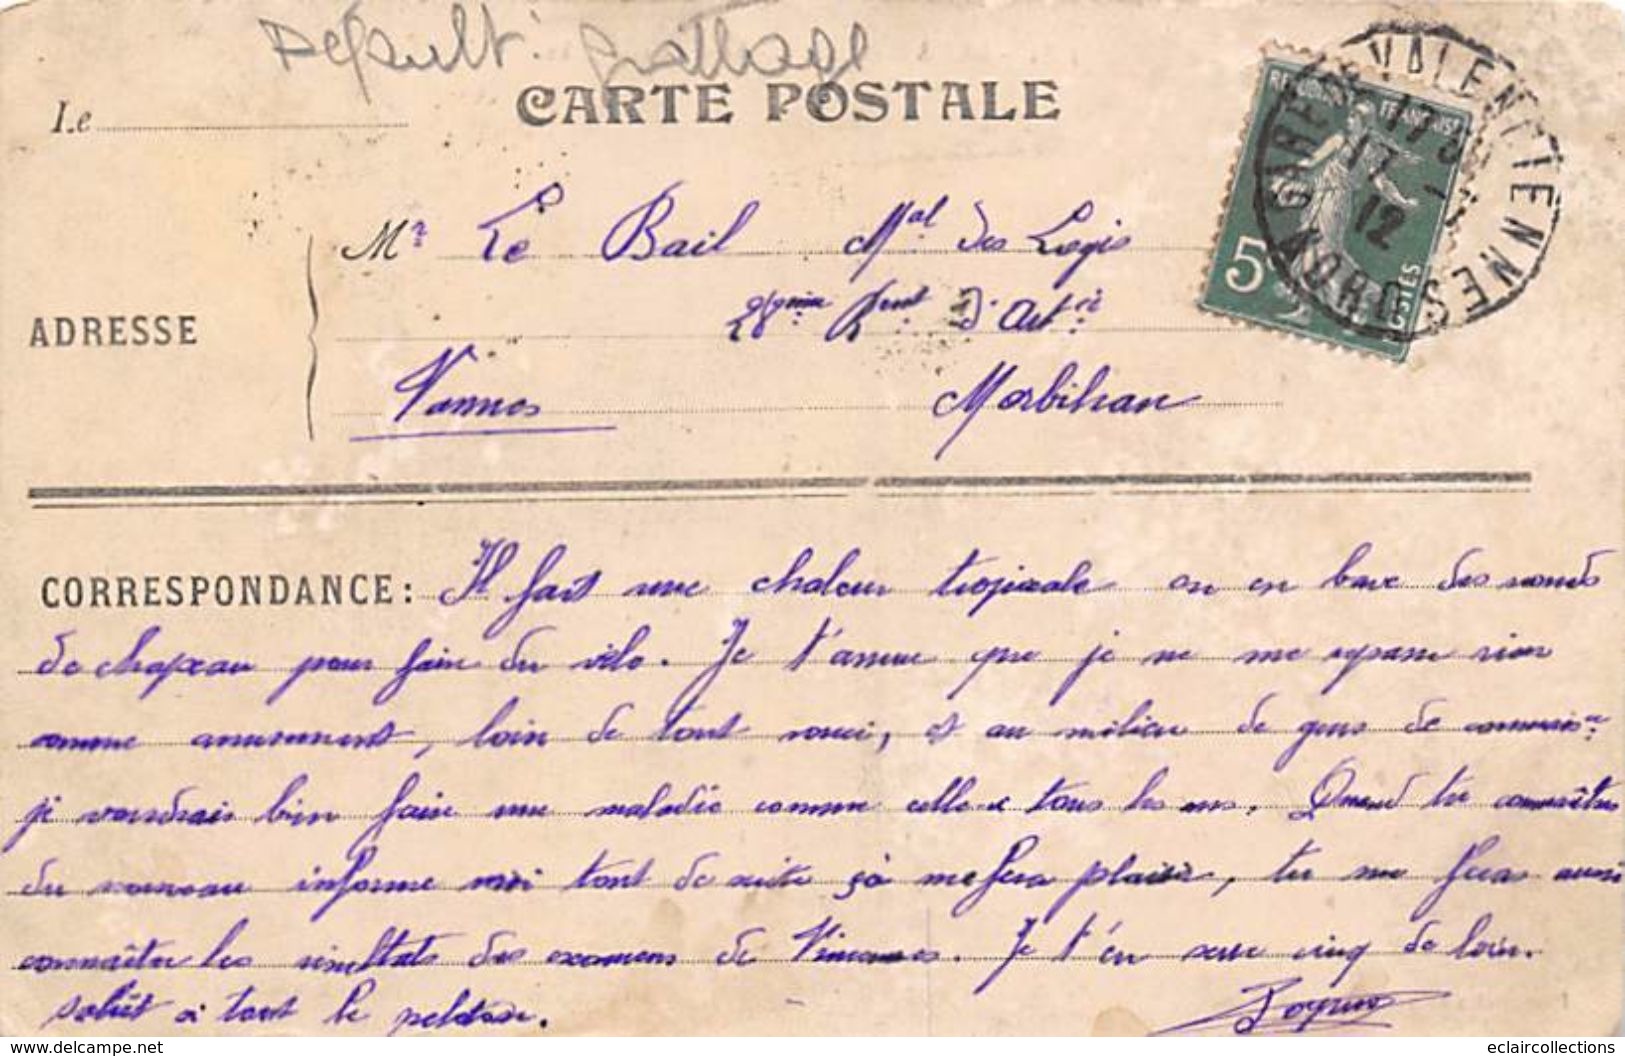 Défault : Grattage
CARTE POSTALE
Le
GARE DE VALENCIENNES
NORD
17
17 - 7
12
REPUBLIQUE FRANÇAISE
5c
POSTES
Mr Le Bail Mal des Logis
28ème Rgent d'Artrie
ADRESSE
Vannes Morbihan
CORRESPONDANCE :
Il fait une chaleur tropicale on en bave des ronds
de chapeau pour faire du vélo. Je t'assure que je ne me refuse rien
comme amusement, loin de tout souci, et au milieu de gens de connaisce
je voudrais bien faire une maladie comme celle-ci tous les ans. Quand tu connaîtras
du nouveau informe moi tout de suite çà me fera plaisir, tu me feras aussi
connaître les résultats des examens de Vincennes. Je t'en serre cinq de loin.
Salut à tout le peloton.
eclaircollections-www.delcampe.net
eclaircollections